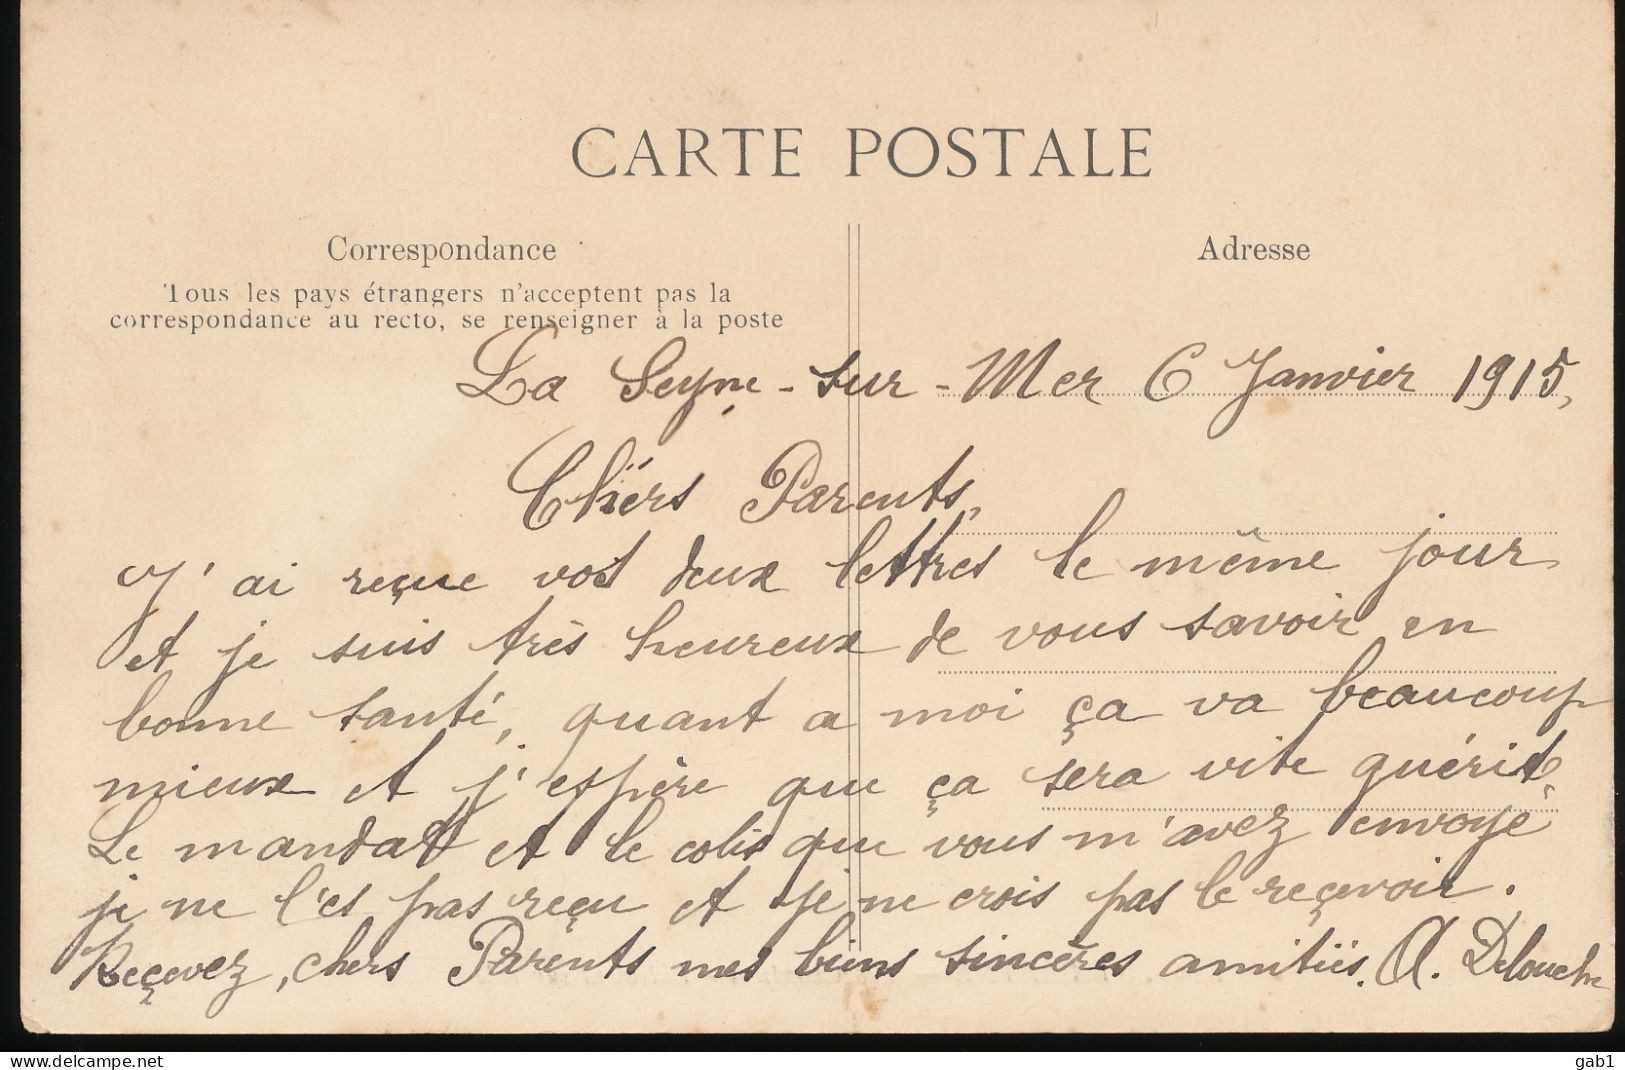 CARTE POSTALE
Correspondance
Adresse
Tous les pays étrangers n'acceptent pas la
correspondance au recto, se renseigner à la poste
La Seyne-sur-Mer 6 Janvier 1915,
Chers Parents,
J'ai reçue vos deux lettres le même jour
et je suis très heureux de vous savoir en
bonne santé, quant a moi ça va beaucoup
mieux et j'espère que ça sera vite guérit.
Le mandat et le colis que vous m'avez envoyé
je ne l'es pas reçu et je ne crois pas le reçevoir.
Reçevez, chers Parents mes biens sincères amitiés. A. Delouche
delcampe.net
gab1